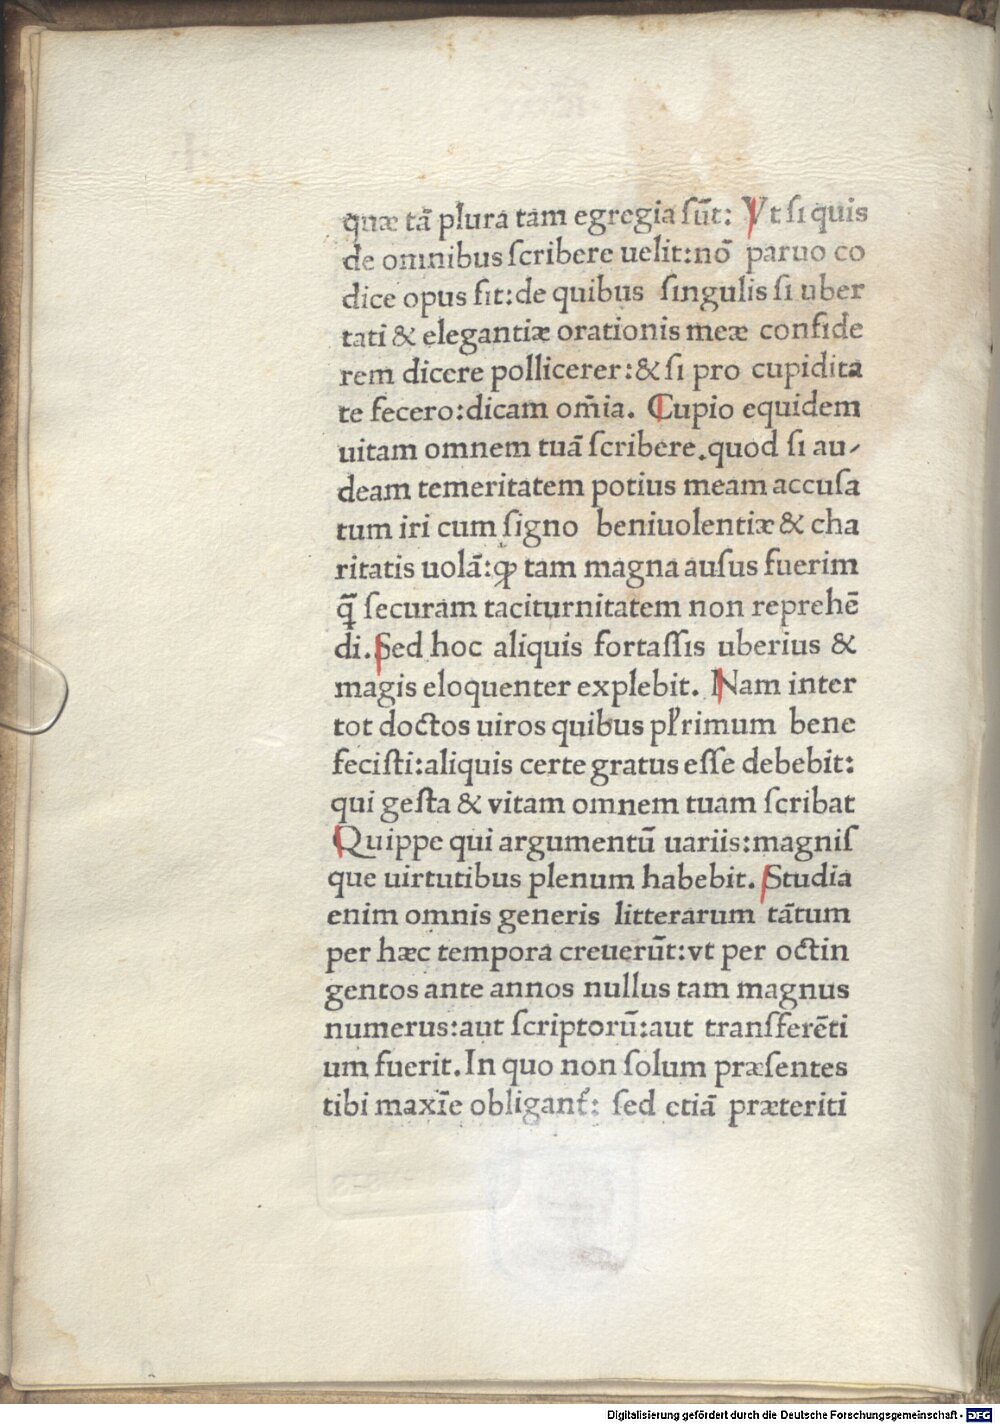 quæ tā plura tam egregia ſūt: Vt ſi quis
de omnibus ſcribere uelit:nō paruo co
dice opus ſit:de quibus ſingulis ſi uber
tati & elegantiæ orationis meæ confide
rem dicere pollicerer:& ſi pro cupidita
te fecero:dicam om̄ia. Cupio equidem
uitam omnem tuā ſcribere.quod ſi au-
deam temeritatem potius meam accuſa
tum iri cum ſigno beniuolentiæ & cha
ritatis uolā:ꝙ tam magna auſus fuerim
q̄ ſecuram taciturnitatem non reprehē
di.Sed hoc aliquis fortaſſis uberius &
magis eloquenter explebit. Nam inter
tot doctos uiros quibus pl'rimum bene
feciſti:aliquis certe gratus eſſe debebit:
qui geſta & vitam omnem tuam ſcribat
Quippe qui argumentū uariis:magniſ
que uirtutibus plenum habebit. Studia
enim omnis generis litterarum tātum
per hæc tempora creuerūt:vt per octin
gentos ante annos nullus tam magnus
numerus:aut ſcriptorū:aut tranſferēti
um fuerit.In quo non ſolum præſentes
tibi maxīe obligant᷑: ſed etiā præteriti
Digitalisierung gefördert durch die Deutsche Forschungsgemeinschaft - DFG